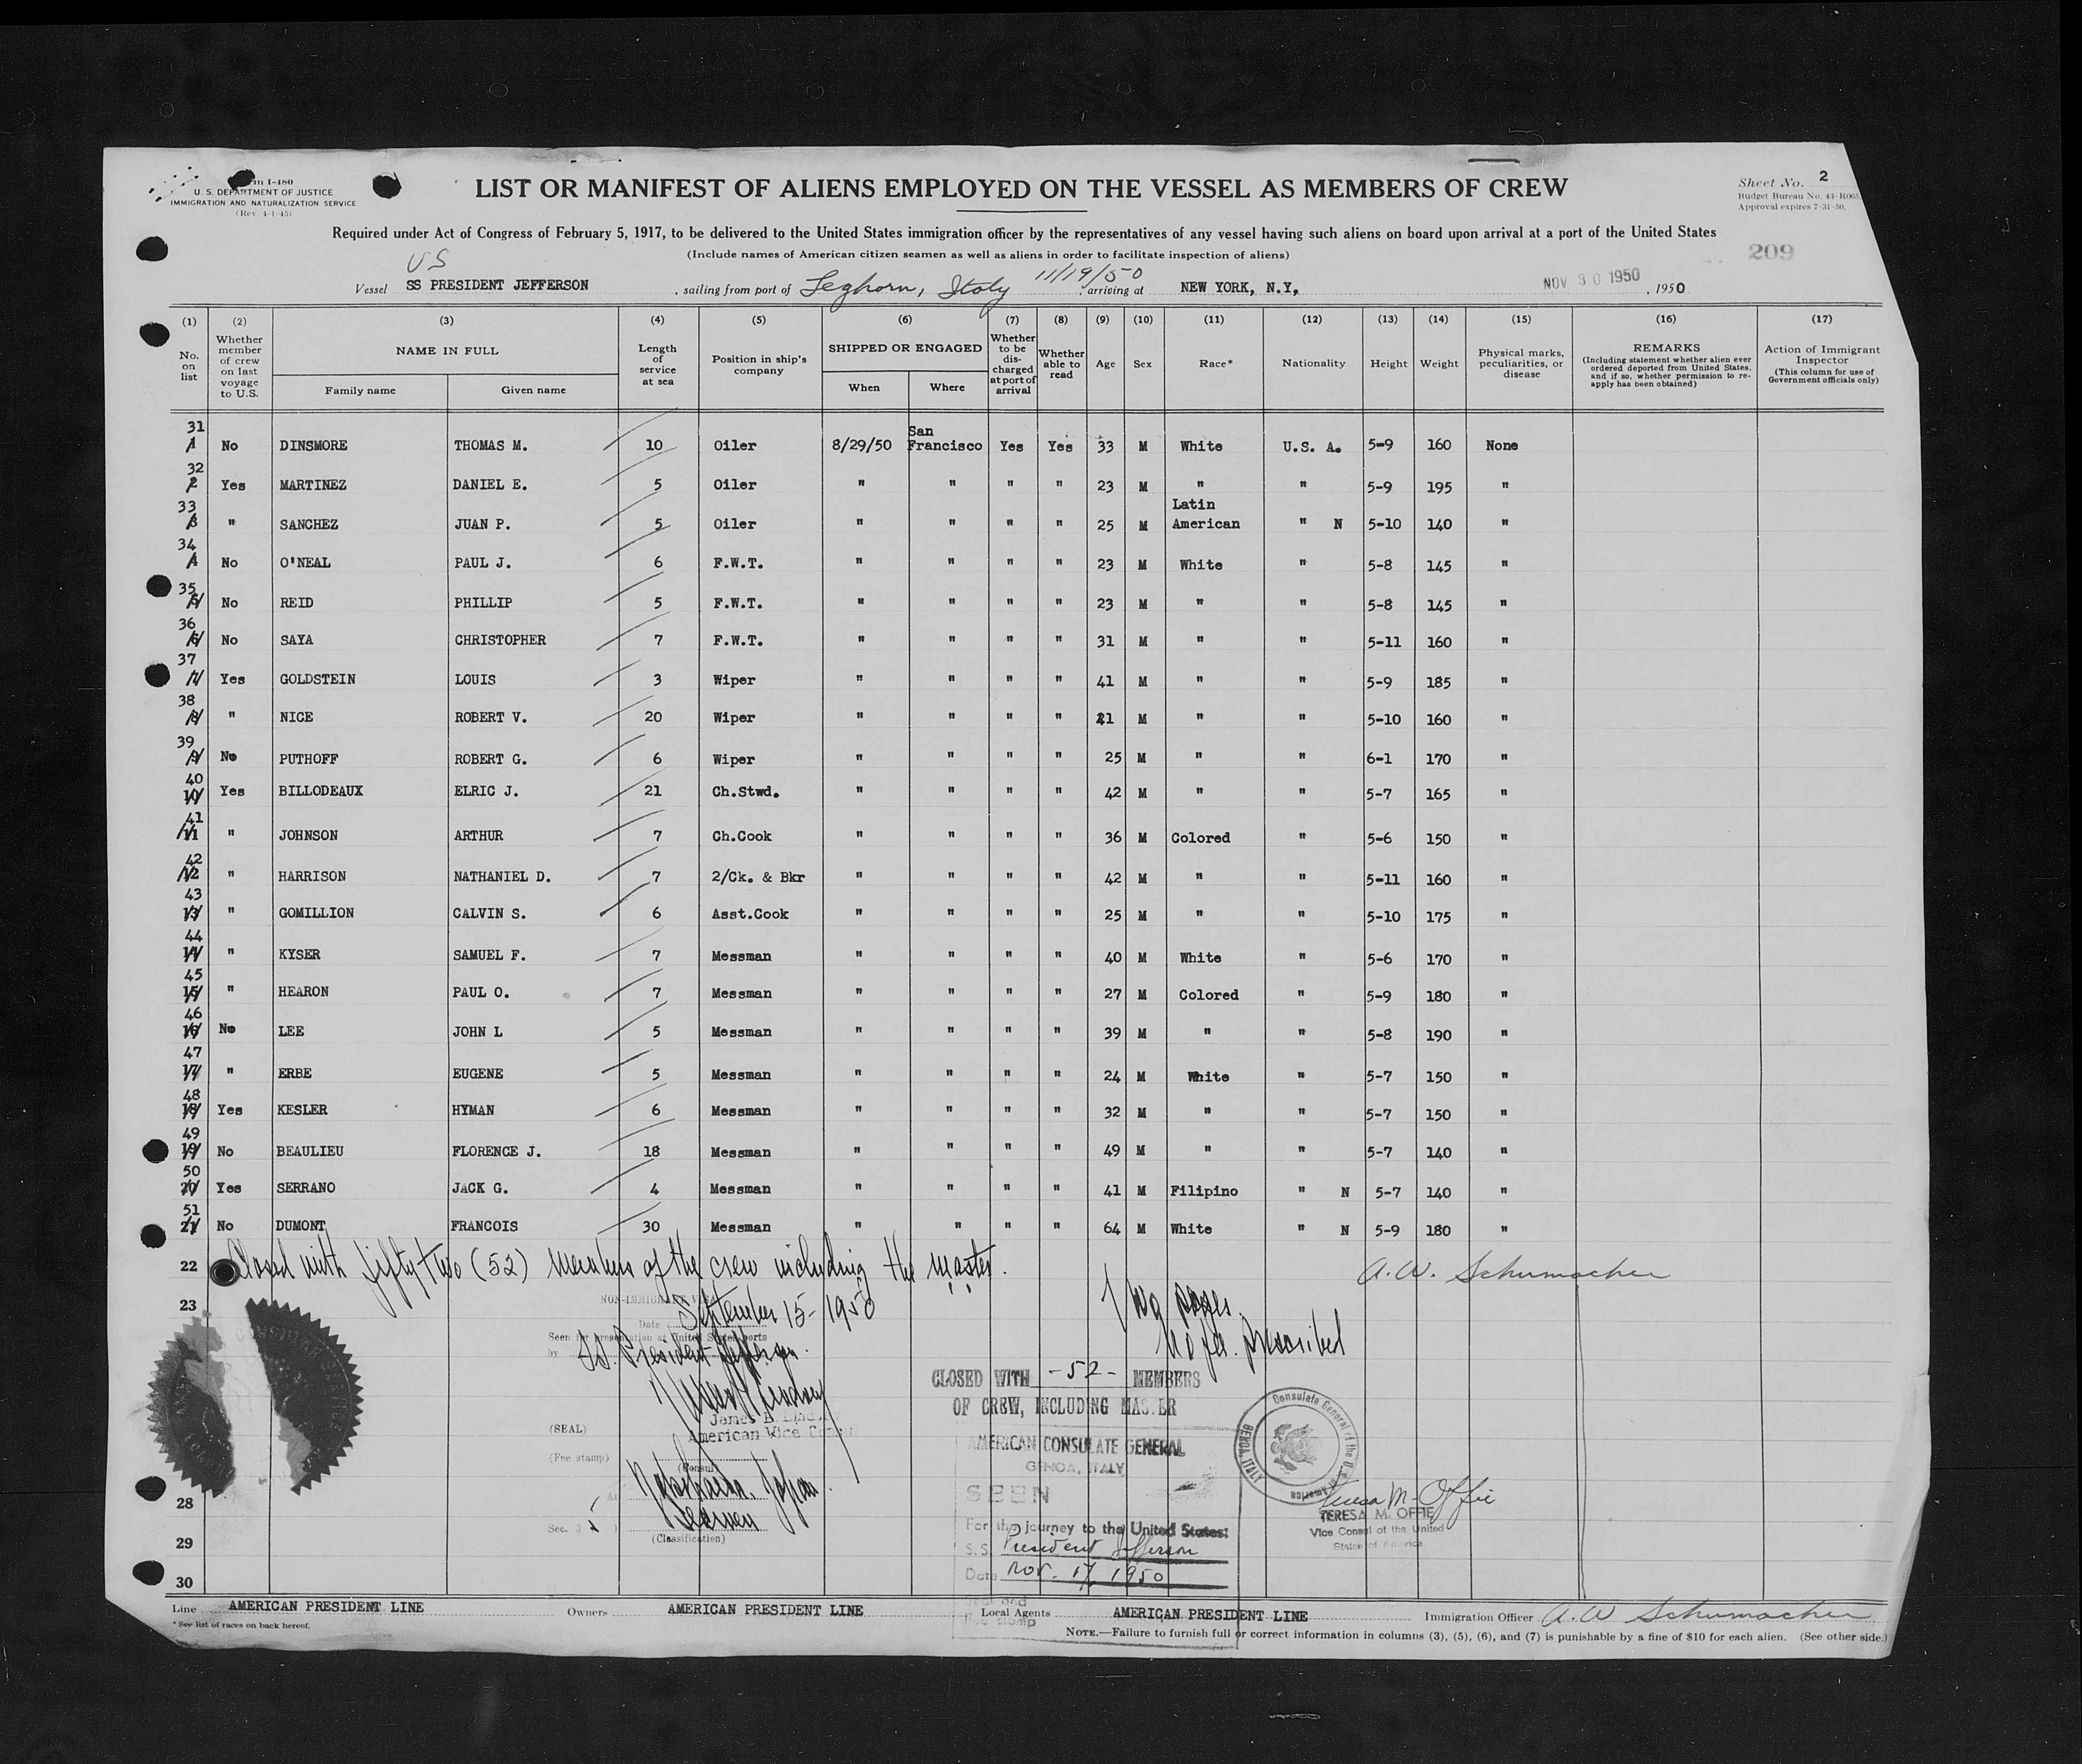 Form I-480
U. S. DEPARTMENT OF JUSTICE
IMMIGRATION AND NATURALIZATION SERVICE
(Rev. 4-1-45)
LIST OR MANIFEST OF ALIENS EMPLOYED ON THE VESSEL AS MEMBERS OF CREW
Sheet No. 2
Budget Bureau No. 43-R065
Approval expires 7-31-50.
Required under Act of Congress of February 5, 1917, to be delivered to the United States immigration officer by the representatives of any vessel having such aliens on board upon arrival at a port of the United States
(Include names of American citizen seamen as well as aliens in order to facilitate inspection of aliens)
209
US
Vessel SS PRESIDENT JEFFERSON, sailing from port of Leghorn, Italy 11/19/50, arriving at NEW YORK, N.Y, NOV 30 1950, 1950
(1) (2) (3) (4) (5) (6) (7) (8) (9) (10) (11) (12) (13) (14) (15) (16) (17)
No. on list
Whether member of crew on last voyage to U.S.
NAME IN FULL
Family name Given name
Length of service at sea
Position in ship's company
SHIPPED OR ENGAGED
When Where
Whether to be discharged at port of arrival
Whether able to read
Age
Sex
Race*
Nationality
Height
Weight
Physical marks, peculiarities, or disease
REMARKS
(Including statement whether alien ever ordered deported from United States, and if so, whether permission to re-apply has been obtained)
Action of Immigrant Inspector
(This column for use of Government officials only)
31 1 No DINSMORE THOMAS M. 10 Oiler 8/29/50 San Francisco Yes Yes 33 M White U.S. A. 5-9 160 None
32 2 Yes MARTINEZ DANIEL E. 5 Oiler " " " " 23 M " " 5-9 195 "
33 3 " SANCHEZ JUAN P. 5 Oiler " " " " 25 M Latin American " N 5-10 140 "
34 4 No O'NEAL PAUL J. 6 F.W.T. " " " " 23 M White " 5-8 145 "
35 5 No REID PHILLIP 5 F.W.T. " " " " 23 M " " 5-8 145 "
36 6 No SAYA CHRISTOPHER 7 F.W.T. " " " " 31 M " " 5-11 160 "
37 7 Yes GOLDSTEIN LOUIS 3 Wiper " " " " 41 M " " 5-9 185 "
38 8 " NICE ROBERT V. 20 Wiper " " " " 21 M " " 5-10 160 "
39 9 No PUTHOFF ROBERT G. 6 Wiper " " " " 25 M " " 6-1 170 "
40 10 Yes BILLODEAUX ELRIC J. 21 Ch.Stwd. " " " " 42 M " " 5-7 165 "
41 11 " JOHNSON ARTHUR 7 Ch.Cook " " " " 36 M Colored " 5-6 150 "
42 12 " HARRISON NATHANIEL D. 7 2/Ck. & Bkr " " " " 42 M " " 5-11 160 "
43 13 " GOMILLION CALVIN S. 6 Asst.Cook " " " " 25 M " " 5-10 175 "
44 14 " KYSER SAMUEL F. 7 Messman " " " " 40 M White " 5-6 170 "
45 15 " HEARON PAUL O. 7 Messman " " " " 27 M Colored " 5-9 180 "
46 16 No LEE JOHN L 5 Messman " " " " 39 M " " 5-8 190 "
47 17 " ERBE EUGENE 5 Messman " " " " 24 M White " 5-7 150 "
48 18 Yes KESLER HYMAN 6 Messman " " " " 32 M " " 5-7 150 "
49 19 No BEAULIEU FLORENCE J. 18 Messman " " " " 49 M " " 5-7 140 "
50 20 Yes SERRANO JACK G. 4 Messman " " " " 41 M Filipino " N 5-7 140 "
51 21 No DUMONT FRANCOIS 30 Messman " " " " 64 M White " N 5-9 180 "
22 Closed with fifty two (52) members of the crew including the master. A. W. Schumacher
23
NON-IMMIGRANT VISA
Date September 15 - 1950
Seen for presentation at United States ports
by SS. President Jefferson.
James B.
American Vice Consul
(SEAL)
(Fee stamp)
(Consul)
Yokohama, Japan
Seamen
Sec. 3
(Classification)
No fee prescribed
CLOSED WITH -52- MEMBERS
OF CREW, INCLUDING MASTER
AMERICAN CONSULATE GENERAL
GENOA, ITALY
SEEN
For the journey to the United States:
S.S. President Jefferson
Date Nov. 17, 1950
Consulate General of the U.S. of America
GENOA, ITALY
Teresa M. Offie
TERESA M. OFFIE
Vice Consul of the United
States of America
28
29
30
Line AMERICAN PRESIDENT LINE Owners AMERICAN PRESIDENT LINE Local Agents AMERICAN PRESIDENT LINE Immigration Officer A. W Schumacher
* See list of races on back hereof.
NOTE.—Failure to furnish full or correct information in columns (3), (5), (6), and (7) is punishable by a fine of $10 for each alien. (See other side.)